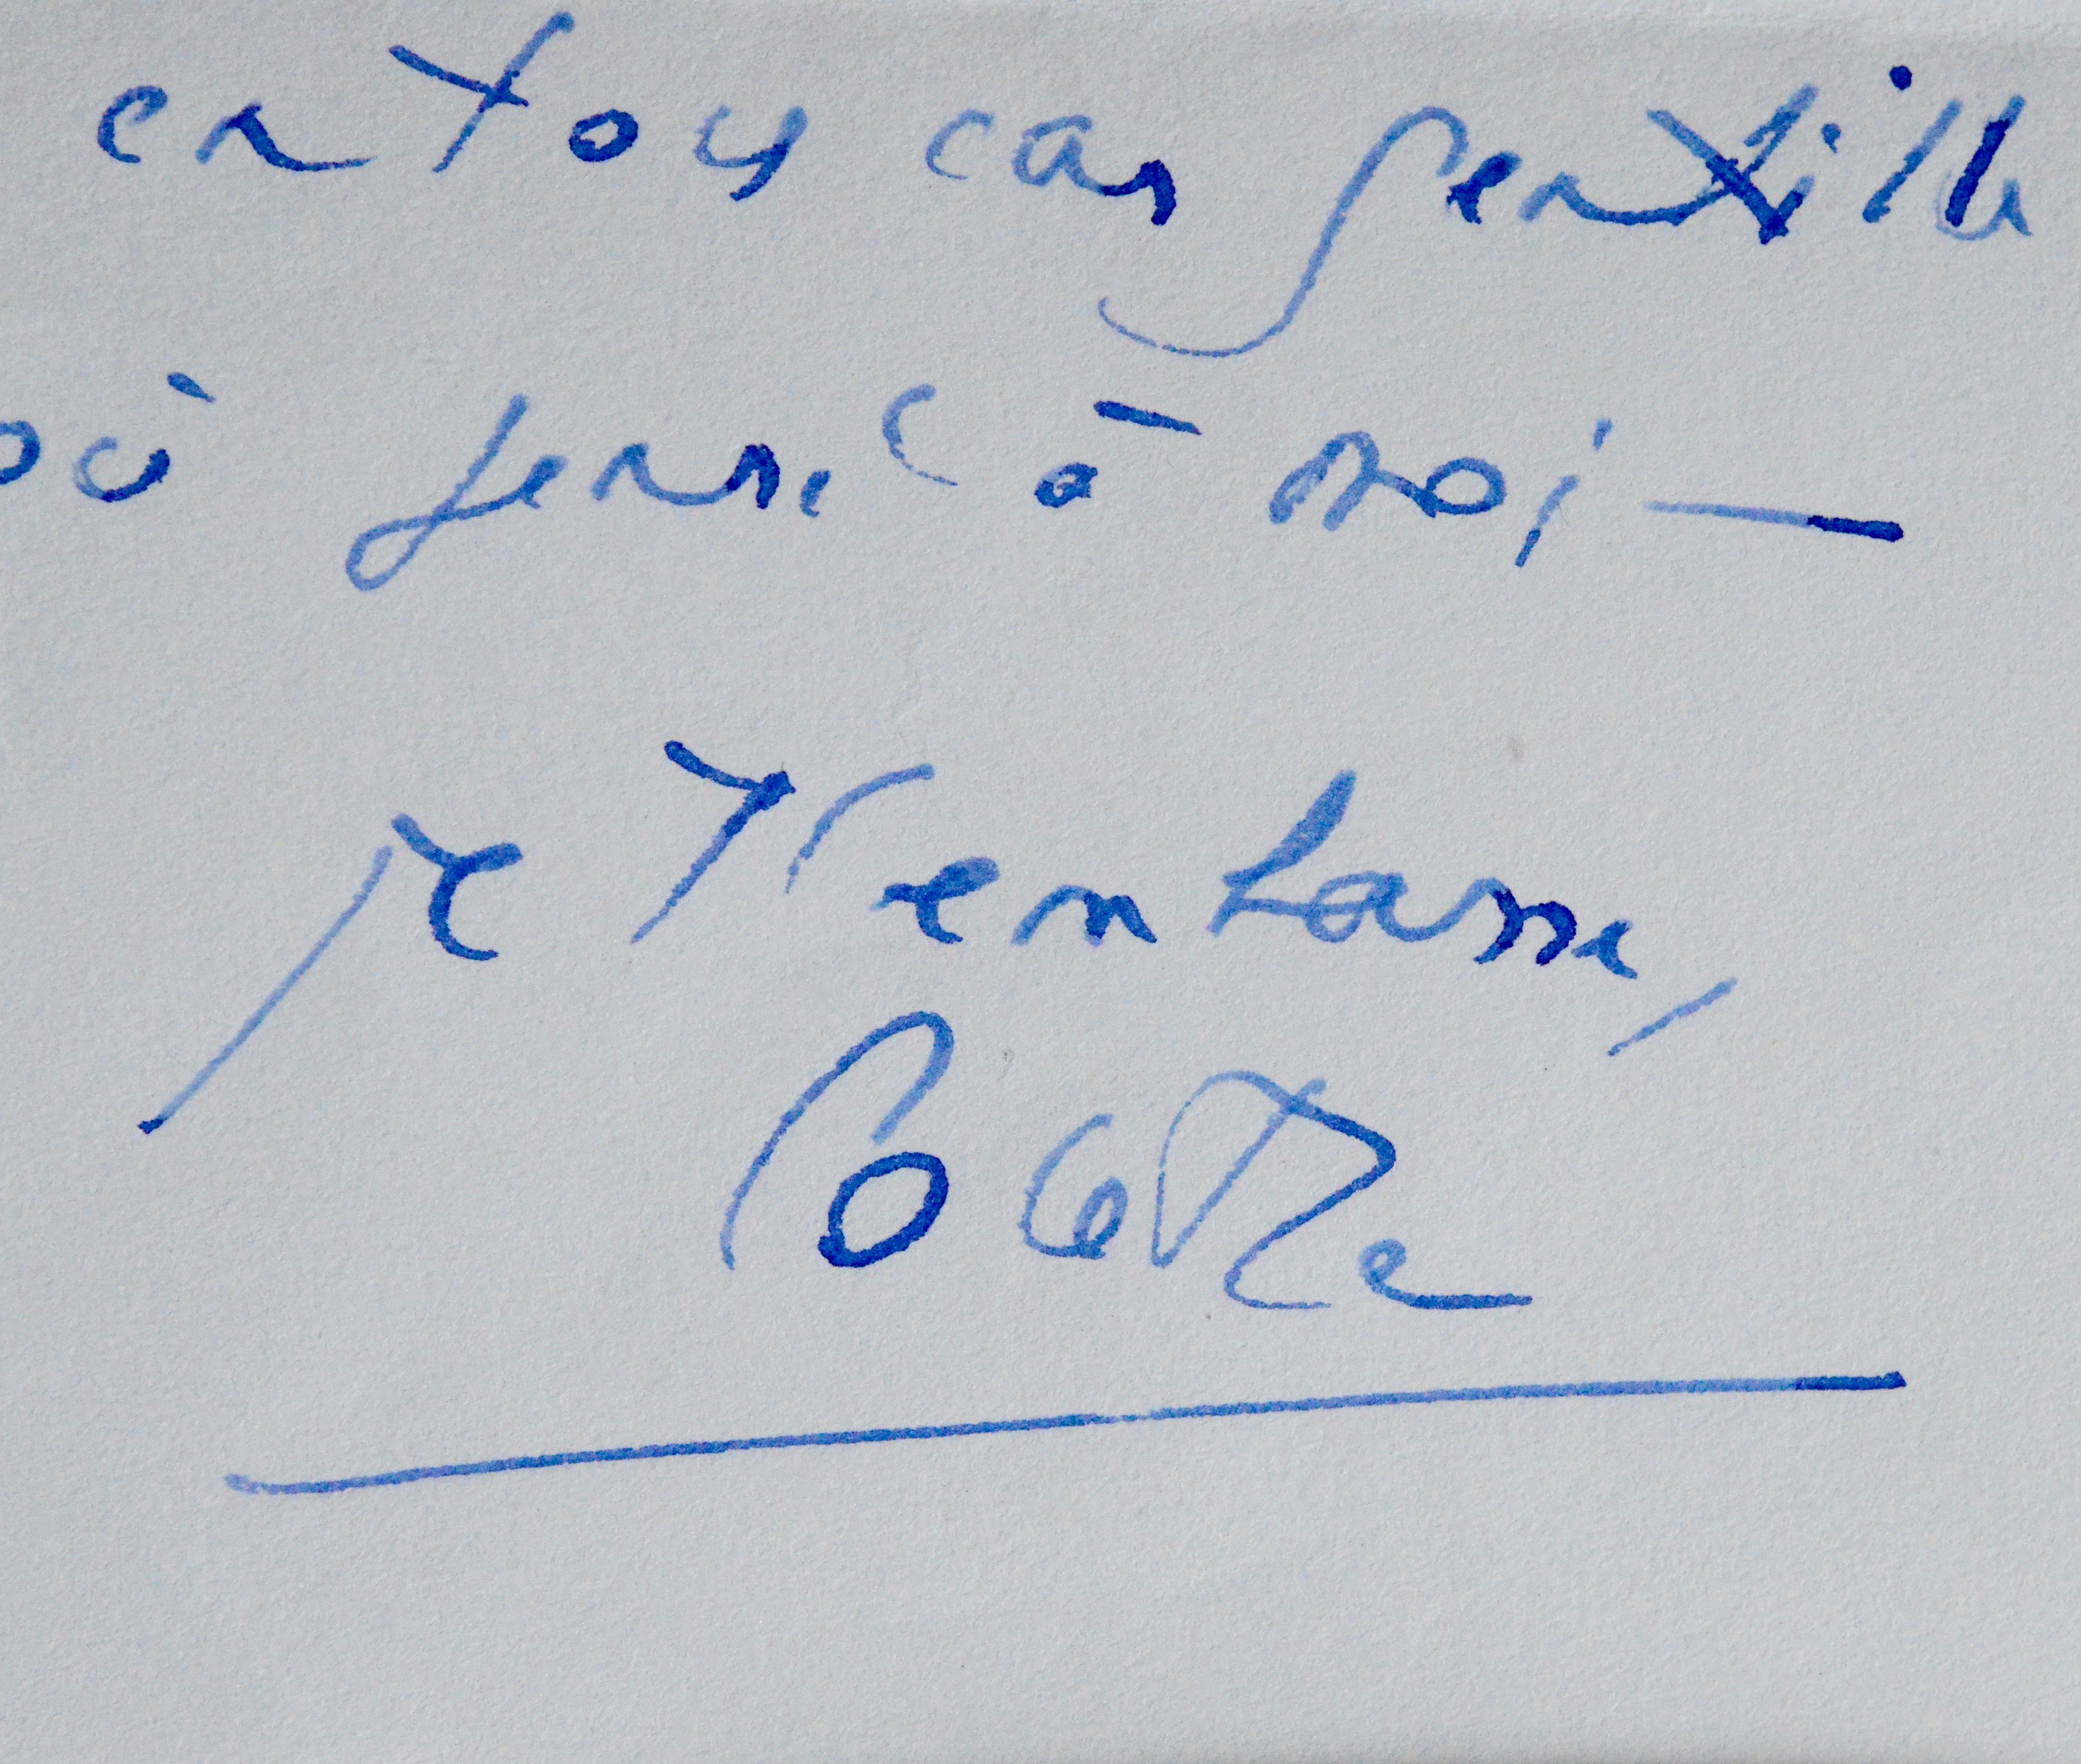 en tous cas gentille
où pensé à moi —
je t'embrasse,
Colette